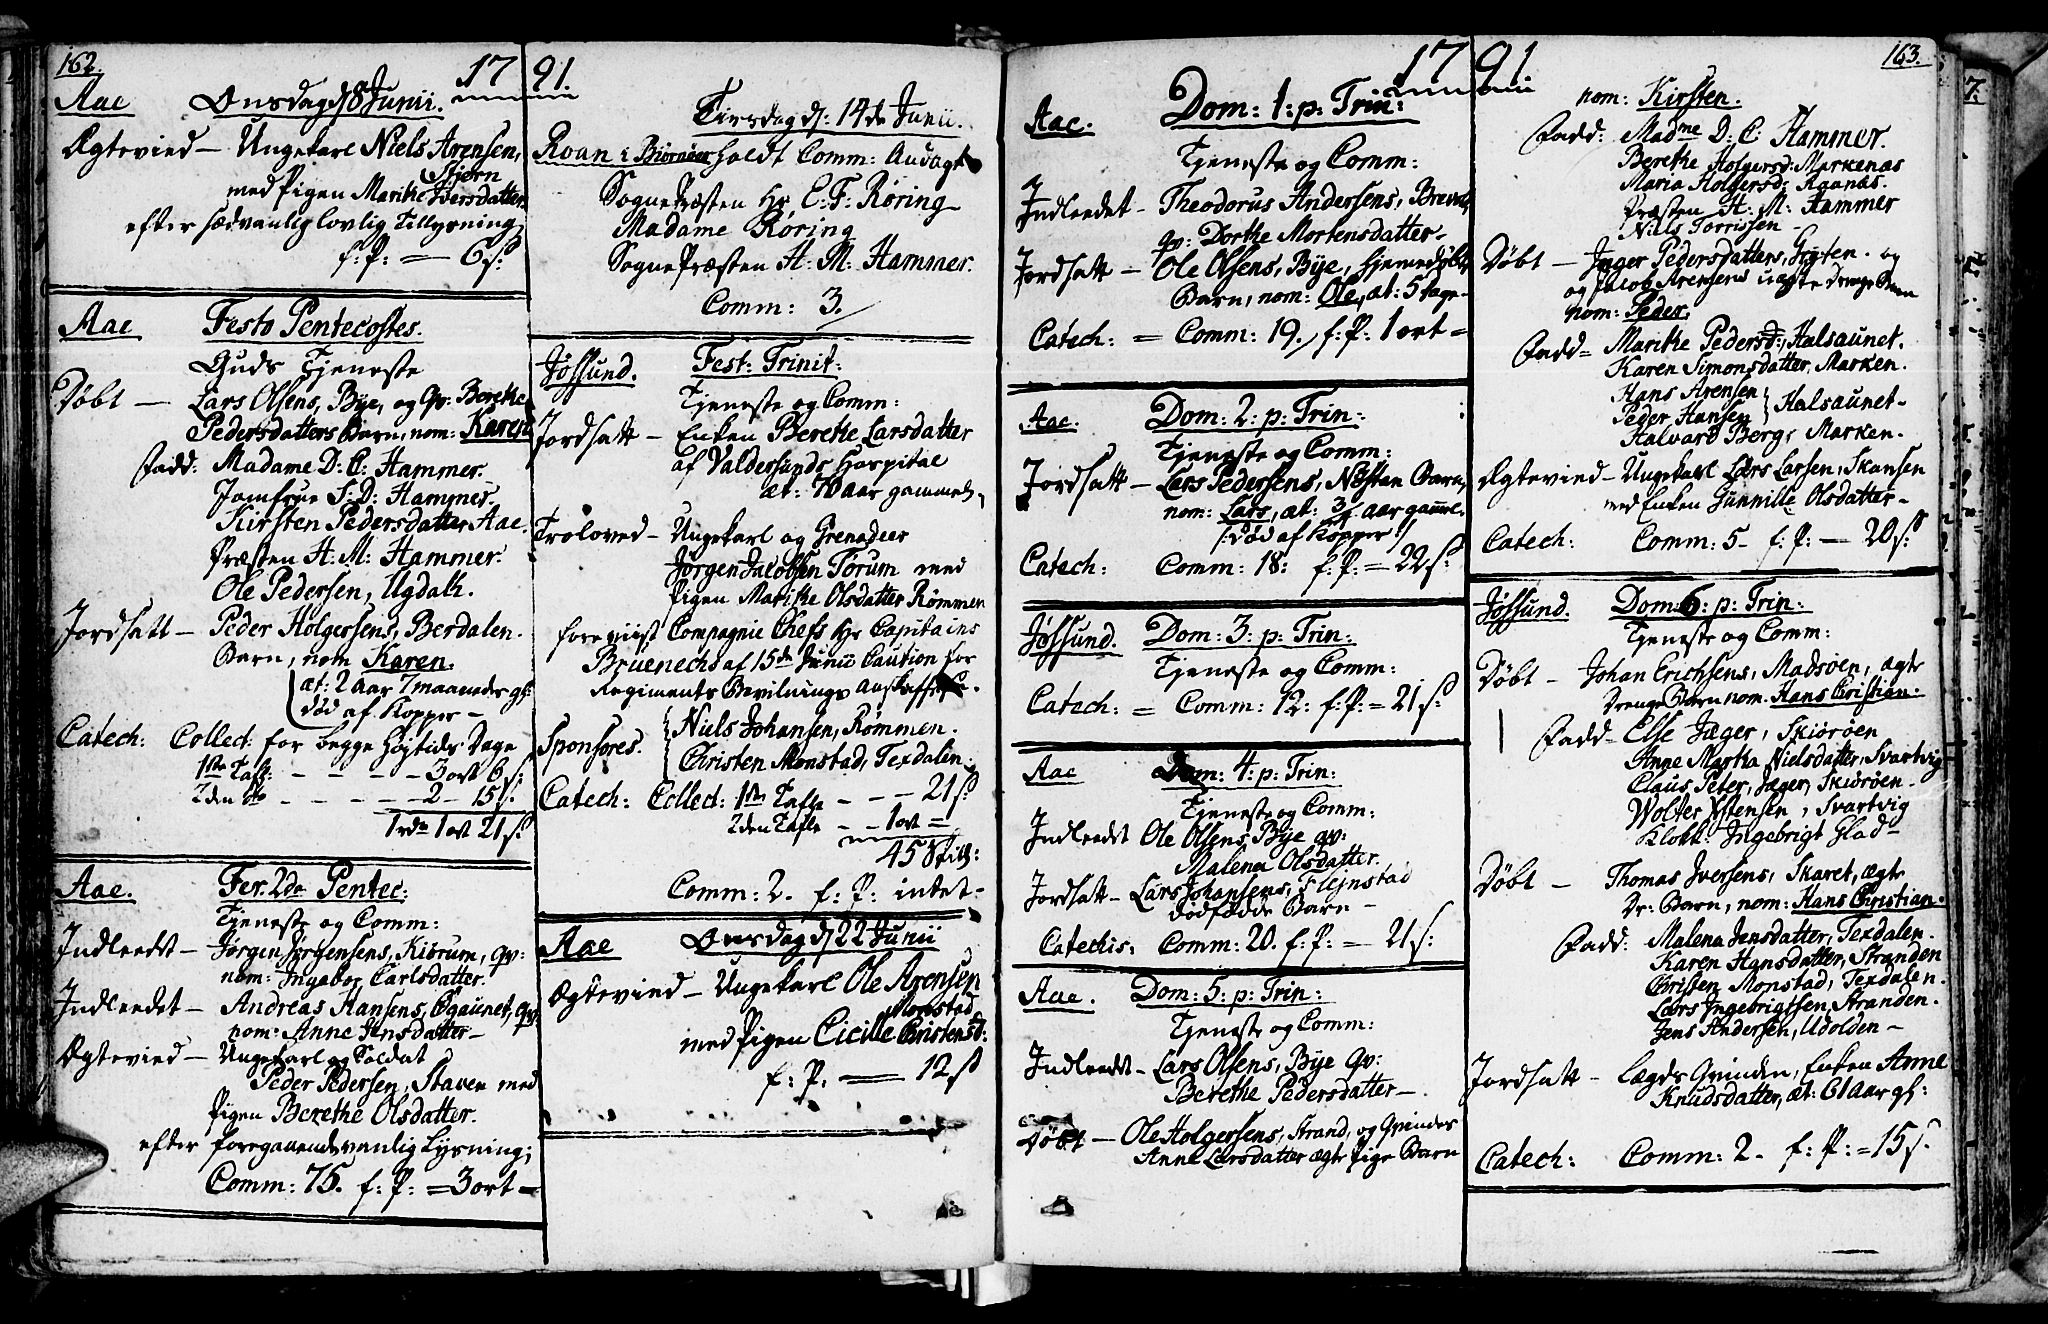 162.
17 91.
Aae Onsdag d 8 Junii.
Ægtevied - Ungekarl Niels Arensen,
Stjern
med Pigen Marithe Iversdatter
efter sædvanlig lovlig Tillysning
f: P: = 6 s:
Aae Festo Pentecostes.
Guds Tjeneste
Døbt - Lars Olsens, Bye, og Qv: Berethe
Pedersdatters Barn, nom: Karen
Fadd: Madame D: C: Hammer.
Jomfrue S: D: Hammer.
Kirsten Pedersdatter Aae.
Præsten H: M: Hammer.
Ole Pedersen, Ugdalk.
Jordsatt - Peder Holgersens, Berdalen.
Barn, nom Karen.
æt: 2 aar 7 maaneder gl:
død af Kopper -
Catech: Collect: for begge Højtids Dage
1ste Tafl: - - - - 3 ort 6 s:
2den do - - - - - 2 - 15 s.
1 rdr 1 ort 21 s:
Aae. Fer. 2da Pentec:
Tjeneste og Comm:
Indleedet - Jørgen Jørgensens, Kiørum, qv:
nom: Ingebor Carlsdatter.
Indleedet - Andreas Hansens, Ogaunet, qv:
nom: Anne Jensdatter -
Ægtevied - Ungekarl og Soldat
Peder Pedersen, Staven med
Pigen Berethe Olsdatter.
efter foregaaende vanlig Lysning;
Comm: 75. f: P: = 3 ort =
Tirsdag d: 14de Junii.
Roan i Biørnøer holdt Comm: Andagt
Sogne Præsten Hr. E: F: Røring
Madame Røring
Sogne Præsten H: M: Hammer.
Comm: 3.
Jøssund. Fest: Trinit:
Tjeneste og Comm:
Jordsatt - Enken Berethe Larsdatter
af Valdersunds Hospital
æt: 70 aar gammel,
Troloved - Ungekarl og Grenadeer
Jørgen Jacobsen Tørum med
Pigen Marithe Olsdatter Rømmen
foreviist Compagnie Chefs Hr Capitains
Bruenechs af 15de Junii Caution for
Regiments Bevilnings Anskaffelse.
Sponsores. Niels Johansen, Rømmen.
Christen Monstad, Texdalen.
Catech: Collect: 1ste Tafle - - - 21 s:
2den Tafle - - 1 ort =
45 Skill:
Comm: 2. f: P: intet -
Aae Onsdag d 22 Junii
Ægtevied - Ungekarl Ole Arensen
Monstad
med Pigen Cicille Christensd:
f: P: = 12 s
17 91.
163.
Aae. Dom: 1: p: Trin:
Tjeneste og Comm:
Indleedet - Theodorus Andersens, Brevold
qv: Dorthe Mortensdatter -
Jordsatt - Ole Olsens, Bye, hjemedøbte
Barn, nom: Ole, æt: 5 dage -
Catech: = Comm: 19. f: P: 1 ort =
Aae. Dom: 2: p: Trin:
Tjeneste og Comm:
Jordsatt - Lars Pedersens, Næsten Barn,
nom: Lars, æt: 3/4 aar gammel.
/: død af Kopper :/
Catech: Comm: 18: f: P: = 22 s:
Jøssund. Dom: 3: p: Trin:
Tjeneste og Comm:
Catech: = Comm: 12: f: P: = 21 s:
Aae Dom: 4: p: Trin:
Tjeneste og Comm:
Indleedet Ole Olsens, Bye qv:
Malena Olsdatter.
Jordsatt - Lars Johansens, Flejnstad
dødfødde Barn -
Catechis: Comm: 20. f: P: = 21 s:
Aae. Dom: 5: p: Trin:
Tjeneste og Comm:
Indleedet - Lars Olsens, Bye Qv:
Berethe Pedersdatter -
Døbt - Ole Holgersens, Strand, og Qvindes
Anne Larsdatter ægte Pige Barn
nom: Kirsten.
Fadd: Madme D: C: Hammer.
Berethe Holgersd: Markenas
Maria Holgersd: Aganæs.
Præsten H: M: Hammer
Niels Torrissen -
Døbt - Inger Pedersdatters, Hysten. og
og Jacob Arensens uægte Drenge Barn
nom: Peder.
Fadd = Marithe Pedersd:, Halsaunet.
Karen Simonsdatter, Marken.
Hans Arensen
Peder Hansen Halsaunet -
Halvard Berg, Marken.
Ægtevied - Ungekarl Lars Larsen, Skansen
med Enken Gunnille Olsdatter -
Catech: Comm: 5 - f: P: - 20 s:
Jøssund. Dom: 6: p: Trin:
Tjeneste og Comm:
Døbt - Johan Erichsens, Madsøen, ægte
Drenge Barn nom: Hans Christian:
Fadd - Else Jæger, Skiørøen
Anne Martha Nielsdatter, Svartvig
Claus Peter, Jæger, Skiørøen -
Wolter Ystensen, Svartvig
Klokk: Ingebrigt Glad -
Døbt - Thomas Iversens, Skaret, ægte
Dr: Barn, nom: Hans Christian.
Fadd: Malena Jensdatter, Texdalen.
Karen Hansdatter, Stranden
Christen Monstad, Texdalen.
Lars Ingebrigtsen, Stranden.
Jens Andersen, Udolden -
Jordsatt - Lægds Qvinden, Enken Anne
Knudsdatter, æt: 61 aar gl:
Catech: Comm: 2. f: P: = 15 s.